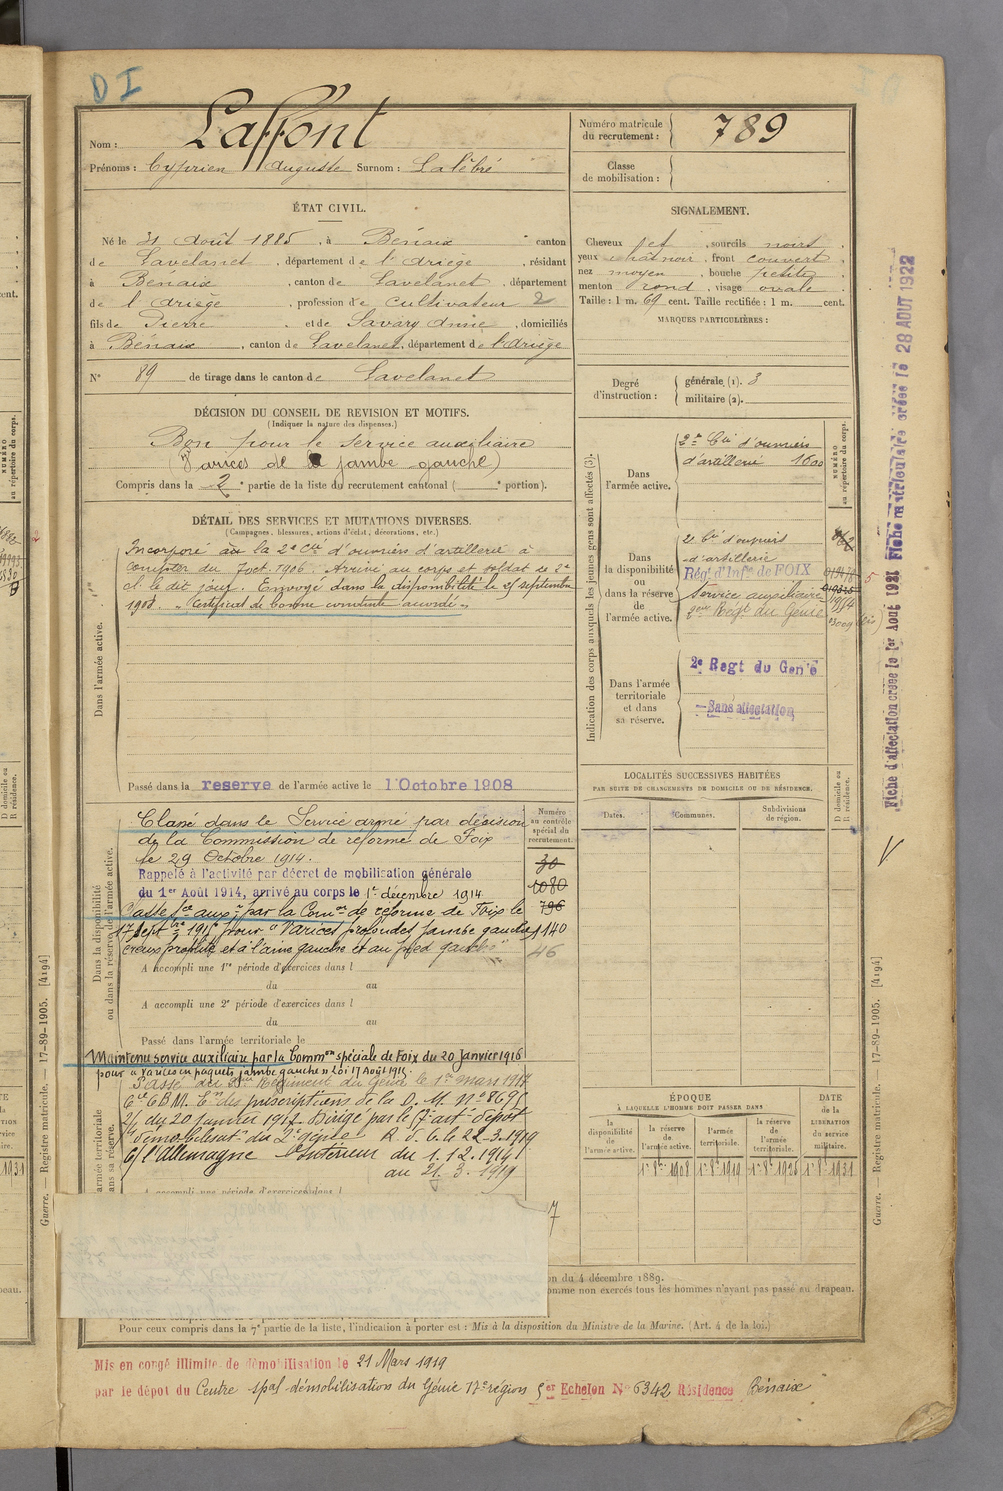 D I
Nom : Laffont
Prénoms : Cyprien Auguste Surnom : Lalébré
Numéro matricule du recrutement : 789
Classe de mobilisation :
ÉTAT CIVIL.
Né le 31 Août 1885, à Bénaix canton
de Lavelanet, département de l'Ariège, résidant
à Bénaix, canton de Lavelanet, département
de l'Ariège, profession de cultivateur 2
fils de Pierre et de Savary Anne, domiciliés
à Bénaix, canton de Lavelanet, département de l'Ariège
N° 89 de tirage dans le canton de Lavelanet
SIGNALEMENT.
Cheveux , sourcils noirs
yeux , front couvert
nez moyen, bouche petite
menton rond, visage ovale
Taille : 1 m. 69 cent. Taille rectifiée : 1 m. cent.
MARQUES PARTICULIÈRES :
Degré d'instruction : générale (1). 3
militaire (2).
DÉCISION DU CONSEIL DE REVISION ET MOTIFS.
(Indiquer la nature des dispenses.)
Bon pour le service auxiliaire
(Varices de la jambe gauche)
Compris dans la 2e partie de la liste du recrutement cantonal ( e portion).
DÉTAIL DES SERVICES ET MUTATIONS DIVERSES.
(Campagnes, blessures, actions d'éclat, décorations, etc.)
Dans l'armée active.
Incorporé à la 2e Cie d'ouvriers d'artillerie à
compter du 7 oct. 1906. Arrivé au corps et soldat de 2e
cl. le dit jour. Envoyé dans la disponibilité le 25 septembre
1908. "Certificat de bonne conduite accordé"
Passé dans la reserve de l'armée active le 1 Octobre 1908
Indication des corps auxquels les jeunes gens sont affectés (3).
NUMÉRO au répertoire du corps.
Dans l'armée active.
2e Cie d'ouvriers
d'artillerie 1600
Dans la disponibilité ou dans la réserve de l'armée active.
2e Cie d'ouvriers
d'artillerie
Régt d'Infie de FOIX
Service auxiliaire
2ème Régt du Génie
Dans l'armée territoriale et dans sa réserve.
2e Regt du Genie
Sans affectation
Fiche d'affectation créée le 1er Août 1921 Fiche matriculaire créée le 28 AOUT 1922
LOCALITÉS SUCCESSIVES HABITÉES
PAR SUITE DE CHANGEMENTS DE DOMICILE OU DE RÉSIDENCE.
Dates. Communes. Subdivisions de région. D domicile ou R résidence.
Dans la disponibilité ou dans la réserve de l'armée active.
Numéro au contrôle spécial du recrutement.
Classé dans le Service armé par décision
de la Commission de réforme de Foix
le 29 Octobre 1914.
Rappelé à l'activité par décret de mobilisation générale
du 1er Août 1914, arrivé au corps le 1er décembre 1914
Classé Sce auxre par la Comon de réforme de Foix le
17 Septbre 1915 pour "Varices profondes jambe gauche,
creux poplité et à l'aine gauche et au pied gauche"
30
1080
796
1140
46
A accompli une 1re période d'exercices dans l
du au
A accompli une 2e période d'exercices dans l
du au
Passé dans l'armée territoriale le
Maintenu service auxiliaire par la Common spéciale de Foix du 20 Janvier 1916
pour "Varices en paquets jambe gauche" Loi 17 Août 1915.
Passé au 2ème Régiment du Génie le 1er Mars 1917
des prescriptions de la D. M. n° 8695
du 20 Janvier 1917. Dirigé par le
démobilisat. du 2e génie le 22-3-1919
C/ l'Allemagne Intérieur du 1.12.1914
au 21.3.1919
A accompli une période d'exercices dans l
armée territoriale sa réserve.
ÉPOQUE
À LAQUELLE L'HOMME DOIT PASSER DANS
la disponibilité de l'armée active.
la réserve de l'armée active. 1er 8bre 1908
l'armée territoriale. 1er 8bre 1919
la réserve de l'armée territoriale. 1er 8bre 1925
DATE de la LIBÉRATION du service militaire. 1er 8bre 1931
on du 4 décembre 1889.
omme non exercés tous les hommes n'ayant pas passé au drapeau.
Pour ceux compris dans la 7e partie de la liste, l'indication à porter est : Mis à la disposition du Ministre de la Marine. (Art. 4 de la loi.)
Guerre. — Registre matricule. — 17-89-1905. [4194]
Guerre. — Registre matricule. — 17-89-1905. [4194]
Mis en congé illimité de démobilisation le 21 Mars 1919
par le dépot du Centre spal démobilisation du Génie 17e région 5er Echelon N° 6342 Résidence Bénaix